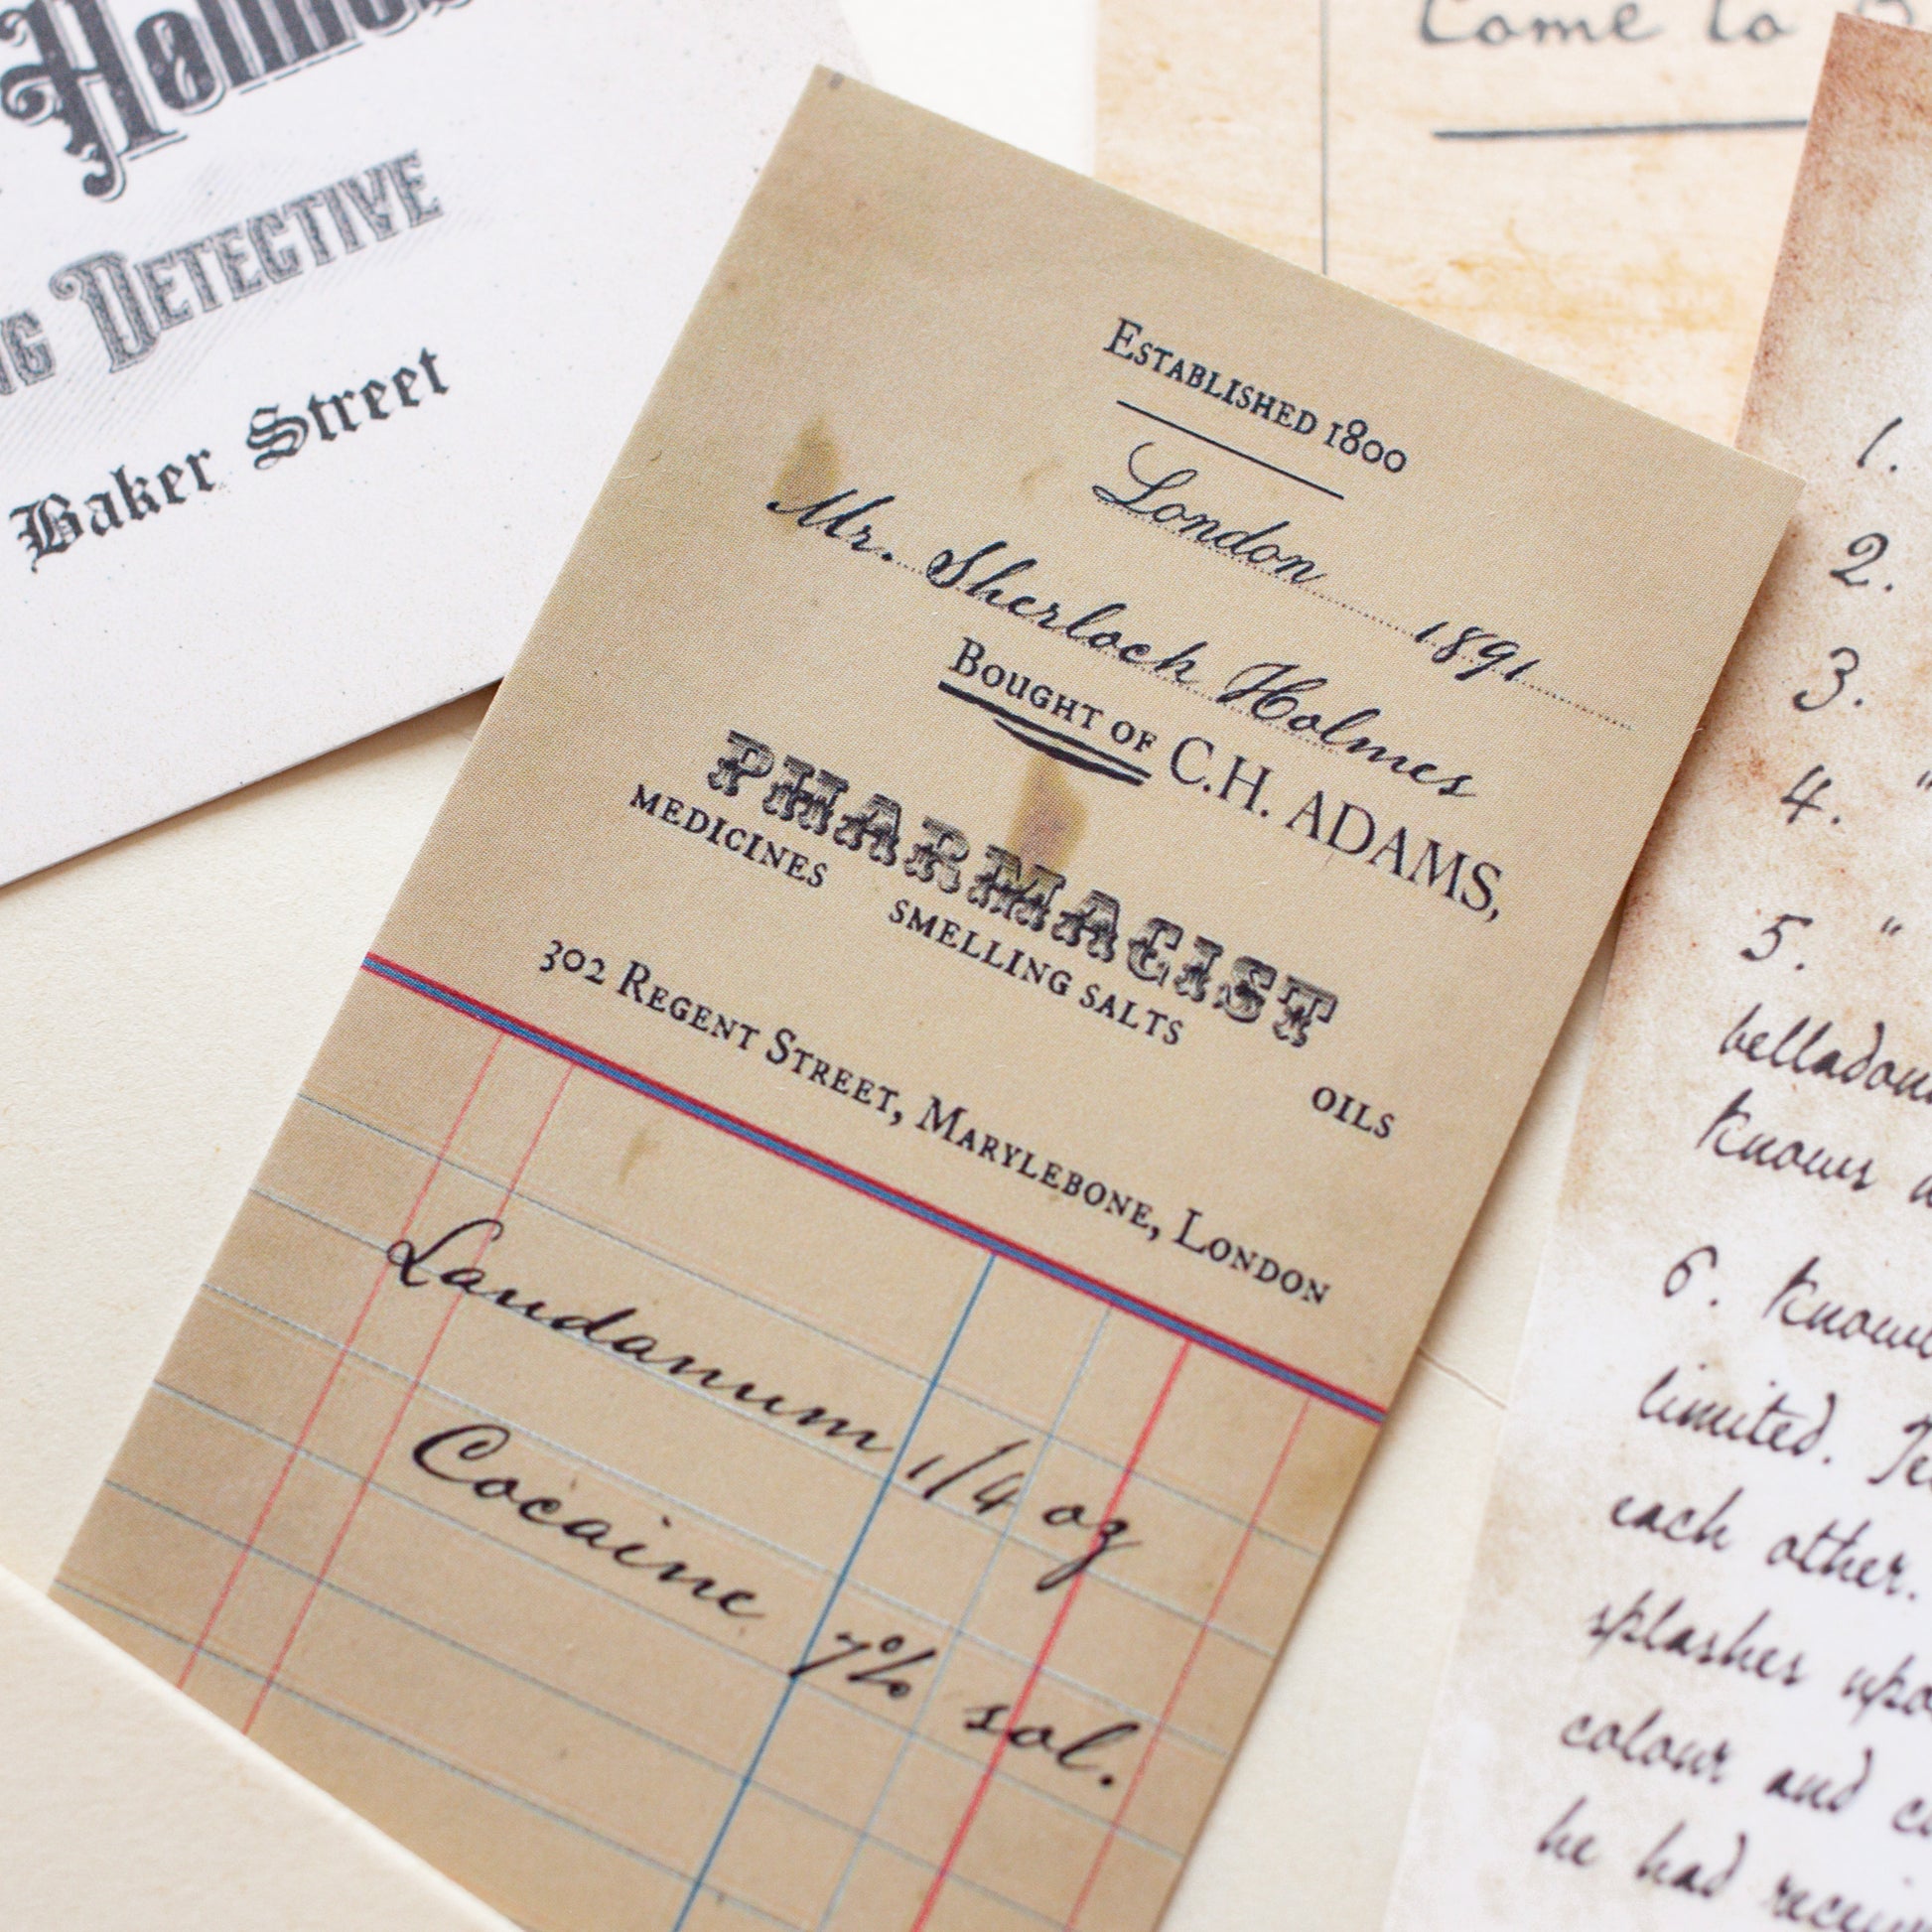 Detective
Baker Street
Come to
Established 1800
London 1891
Mr. Sherlock Holmes
Bought of C.H. ADAMS,
PHARMACIST
MEDICINES SMELLING SALTS OILS
302 Regent Street, Marylebone, London
Laudanum 1/4 oz
Cocaine 7% sol.
1.
2.
3.
4. "
5. "
knows
6.
limited.
each other.
splashes
colour and
he had